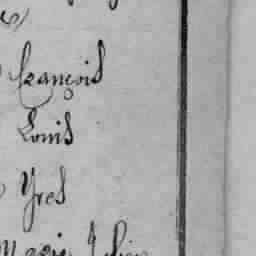 François
Louis
Yves
Marie Julien